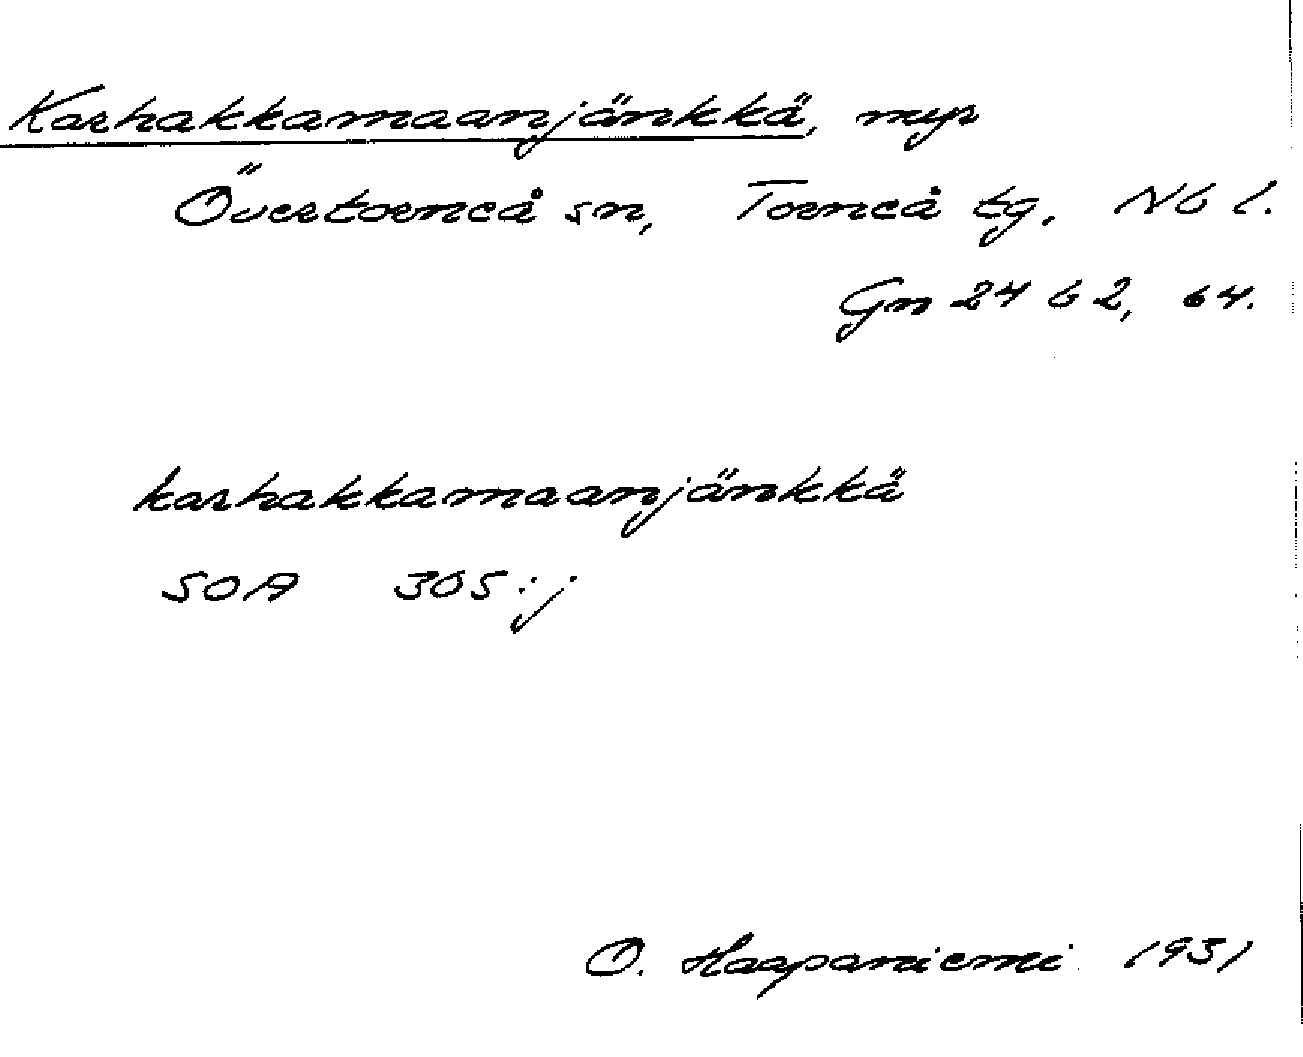 Karhakkamaanjänkkä, myr
Övertorneå sn, Torneå tg. Nb l.
Gn 24 b 2, 64.
karhakkamaanjänkkä
SOA 305:j
O. Haapaniemi 1931